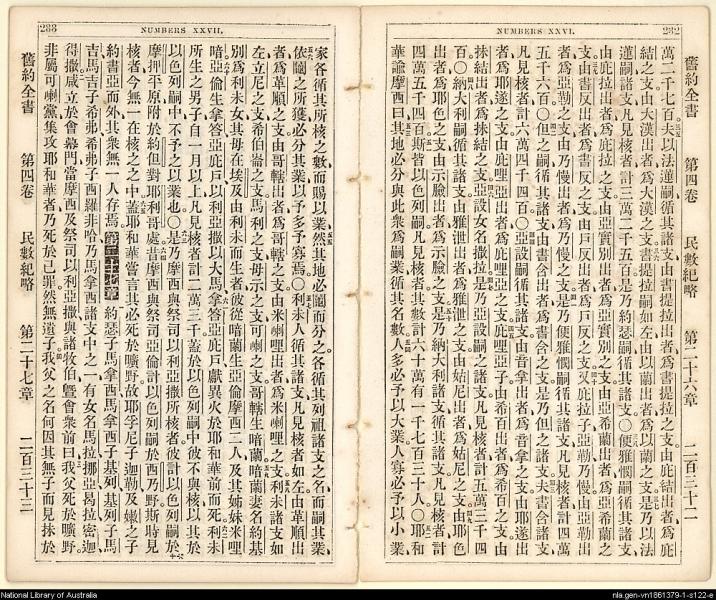 NUMBERS XXVI.
232
舊約全書 第四卷 民數紀略 第二十六章 二百三十二
萬二千七百夫以法蓮嗣循其諸支由書提拉出者為書提拉之支由庇結出者為庇
結之支由大漢出者為大漢之支書提拉嗣如左由以蘭出者為以蘭之支是乃以法
蓮嗣諸支凡見核者計三萬二千五百是乃約瑟嗣循其諸支〇便雅憫嗣循其諸支
由庇拉出者為庇拉之支由亞實別出者為亞實別之支由亞希蘭出者為亞希蘭之
支由書反出者為書反之支由戶反出者為戶反之支又庇拉子亞勒乃慢由亞勒出
者為亞勒之支由乃慢出者為乃慢之支是乃便雅憫嗣循其諸支凡見核者計四萬
五千六百〇但之嗣循其諸支由書含出者為書含之支是乃但之諸支夫書含諸支
凡見核者計六萬四千四百〇亞設嗣循其諸支由音拿出者為音拿之支由耶遂出
者為耶遂之支由庇哩亞出者為庇哩亞之支庇哩亞子由希百出者為希百之支由
抹結出者為抹結之支亞設女名撒拉是乃亞設嗣之諸支凡見核者計五萬三千四
百〇納大利嗣循其諸支由雅泄出者為雅泄之支由姑尼出者為姑尼之支由耶色
出者為耶色之支由示臉出者為示臉之支是乃納大利諸支循其諸支凡見核者計
四萬五千四百斯皆以色列嗣凡見核者其數計六十萬有一千七百三十人〇耶和
華諭摩西曰其地必分與此衆為嗣業循其名數人多必予以大業人寡必予以小業
NUMBERS XXVII.
233
家各循其所核之數而賜以業然其地必鬮而分之各循其列祖諸支之名而嗣其業
依鬮之所獲必分其業以予多予寡焉〇利未人循其諸支凡見核者如左由革順出
者為革順之支由哥轄出者為哥轄之支由米喇哩出者為米喇哩之支利未諸支如
左立尼之支希伯崙之支馬利之支母示之支可喇之支哥轄生暗蘭暗蘭妻名約基
別為利未女其母在埃及由利未而生者彼從暗蘭生亞倫摩西二人及其姊妹米哩
暗亞倫生拿答亞庇戶以利亞撒以大馬拿答亞庇戶獻異火於耶和華前而死利未
所生之男子自一月以上凡見核者計二萬三千蓋於以色列嗣中彼不與核以其於
以色列嗣中不予之以業也〇是乃摩西與祭司以利亞撒所核者彼計以色列嗣於
摩押平原附於約但對耶利哥處昔摩西與祭司亞倫計以色列嗣於西乃野斯時見
核者今無一在核之之中蓋耶和華嘗言其必死於曠野故耶孚尼子迦勒及嫩之子
約書亞而外其衆無一人存焉 第二十七章 約瑟子馬拿西馬拿西子基列基列子馬
吉馬吉子希弗希弗子西羅非哈乃馬拿西諸支中之一有女名馬拉挪亞曷拉密迦
得撒咸立於會幕門當摩西及祭司以利亞撒與諸牧伯暨會衆前曰我父死於曠野
非屬可喇黨集攻耶和華者乃死於己罪然無遺子我父之名何因其無子而見抹於
舊約全書 第四卷 民數紀略 第二十七章 二百三十三
National Library of Australia
nla.gen-vn1861379-1-s122-e